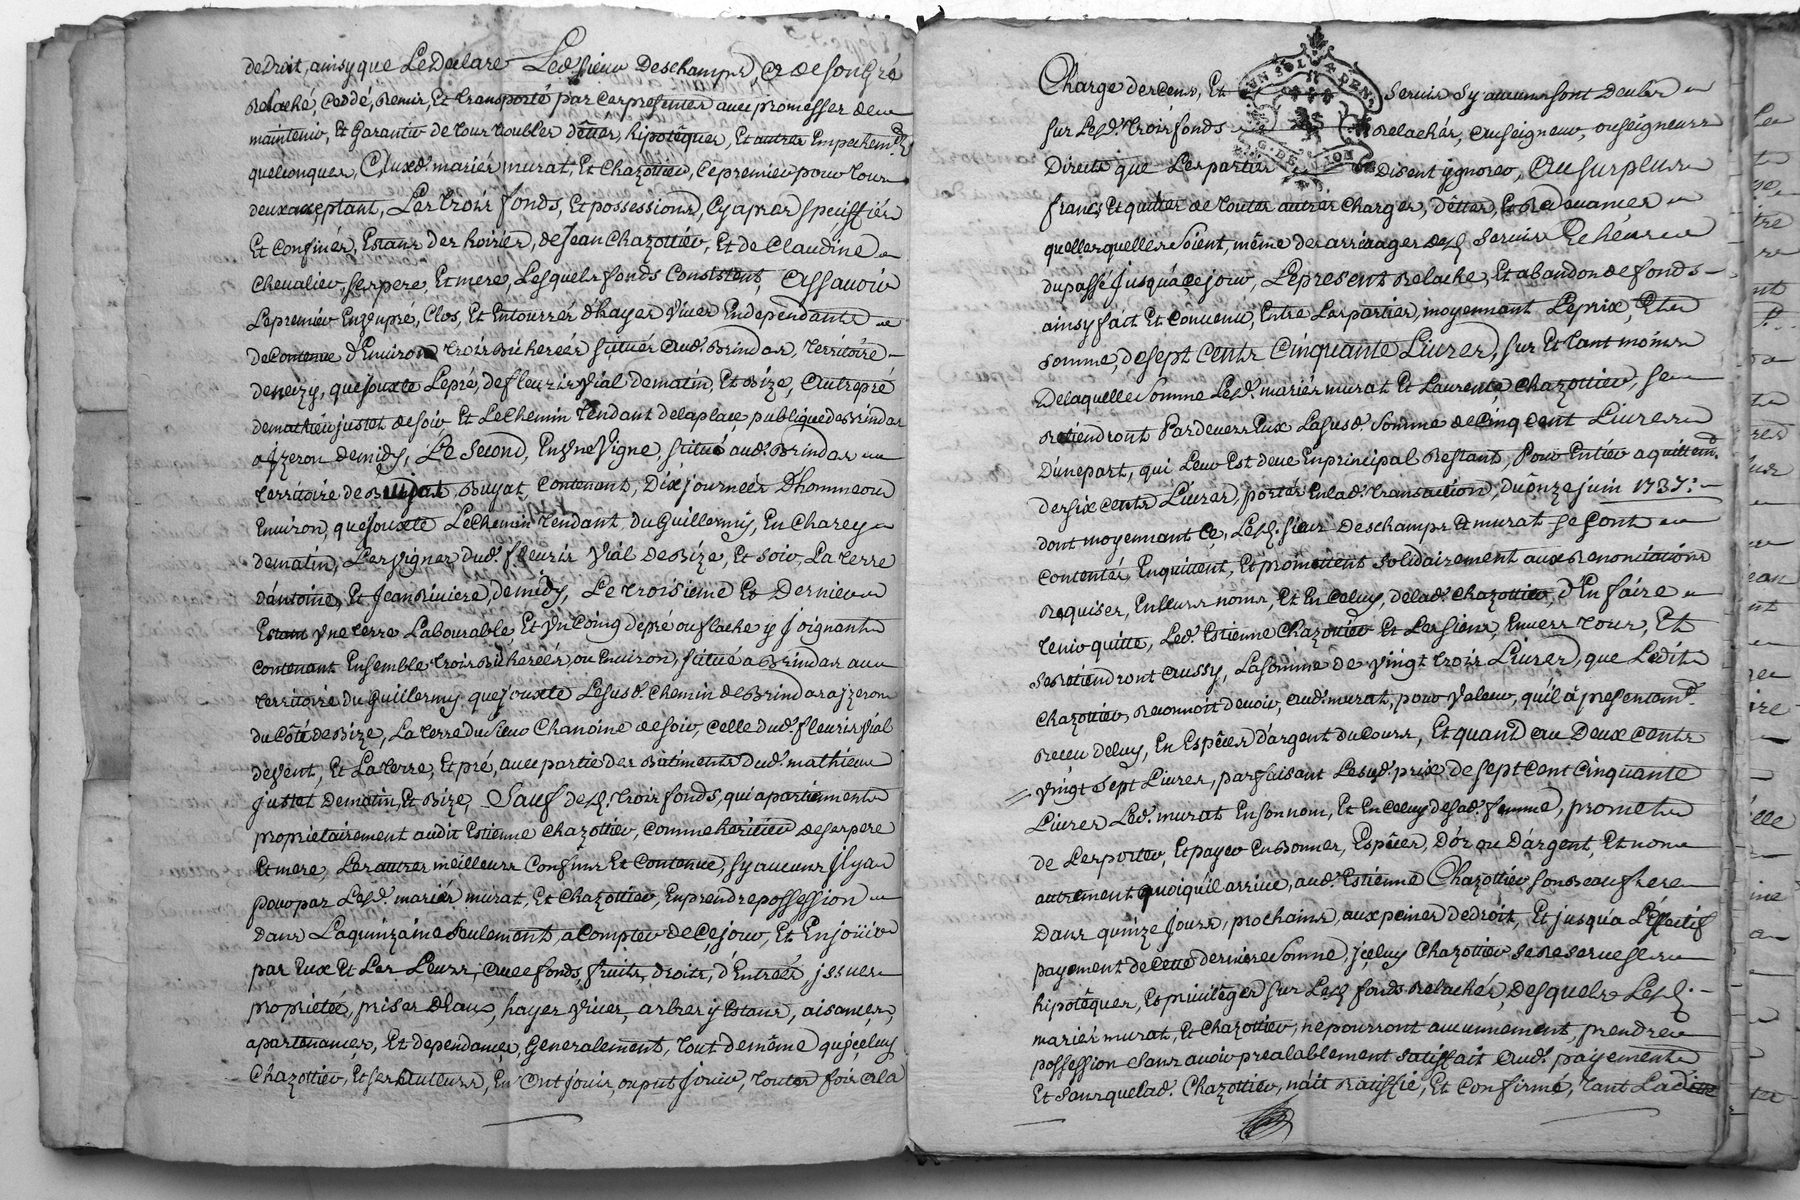 de Droit, ainsy que Le Declare Led. Sieur Deschamps, Et de son Gré
Relaché, Ceddé, Remis, Et transporté par Ces presentes avec promesses de
maintenir, Et Garantir de tous troubles dêttes, hipotêques, Et autres Empechemts.
quelconques, Auxd. mariés murat, Et Chazottier, Le premier pour tous
deux aceptant, Les trois fonds, Et possessions, Cy apres speciffiés
Et Confinés, Estans des hoiries, de Jean Chazottier, Et de Claudine
Chevalier, ses pere, Et mere, Lesquels fonds Consistent, Assavoir
Le premier En Un pré, Clos, Et Entourrés d'hayes Vives Endependants
de Contenue d'Environ trois Bicherées scitués aud. Brindas, territoire
de neizy, que jouxte Le pré, de fleuris Vial de matin, Et Bize, Autre pré
de mathieu justet de soir Et Le Chemin tendant de la place publique de Brindas
a jzeron de midy, Le Second, En Une Vigne, scitué aud. Brindas
territoire de Buyat, Contenant, Dix journeés D'homme ou
Environ, que jouxte Le Chemin tendant, du Guillermy, En Charey
de matin, Les Vignes dud. fleuris Vial de Bize, Et soir, La terre
d'antoine, Et Jean Riviere, de midy, Le troisieme Et Dernier
Estant Une terre Labourable Et Un Coing de pré ou flache y Joignant
Contenant Ensemble trois Bicherés, ou Environ, scitué a Brindas au
territoire du Guillermy que jouxte Lesusd. Chemin de Brindas a jzeron
du Côté de Bize, La terre du Sieur Chanoine de soir, Celle dud. fleuris Vial
de Vent, Et La terre, Et pré, avec partie des Bâtiments dud. mathieu
justet De matin, Et Bize, Sauf desd. trois fonds, qui apartiennent
propriétairement audit Estienne Chazottier, Comme héritier de ses pere
Et mere, Les autres meilleurs Confins Et Contenue, sy aucuns Il y a
pour par Lesd. mariés murat, Et Chazottier, En prendre possession
Dans La quinzaine seulement, a Compter de Ce jour, Et En joüir
par Eux Et Les Leurs, Avec fonds, fruits, droits, d'Entrées, jssues
propriétés, prises D'eaux, hayes Vives, arbres y Estans, aisances,
apartenances, Et dependances, Generalement, tout de même que jceluy
Chazottier, Et ses Auteurs, En Ont joui, ou put joüir, toutes fois a la
Charge des cens, Et Servis Sy aucuns sont deubs
sur Lesd. trois fonds Relachés, Au seigneur, ou seigneurs
Directs que Les parties Disent ygnorer, Au Surplus
francs Et quittes de toutes autres Charges, dêttes, Et Redevances
quelles quelles soient, même des arrérages desd. servis Echéus
du passé jusqu'a ce jour, Le present Relache, Et abandon de fonds
ainsy fait Et Convenu, Entre Les parties, moyennant Le prix, Et
Somme, de sept Cents Cinquante Livres, sur Et tant moins
De laquelle Somme Lesd. mariés murat Et Laurence Chazottier, se
Retiendront Par devers Eux La susd. Somme de Cinq Cent Livres
D'une part, qui Leur Est deüe En principal Restant, Pour Entier aquittemt.
des six cents Livres, portés En lad. transaction, du ônze juin 1737:
dont moyennant Ce, Lesd. sieur Deschamps Et murat se sont
Contentés, En quittent, Et promettent Solidairement aux Renonciations
Requises, En Leurs noms, Et En Celuy, de lad. Chazottier, d'En faire
tenir quitte, Led. Estienne Chazottier Et Les siens, Envers tous, Et
se Retiendront Aussy, La somme de Vingt trois Livres, que Ledit
Chazottier Reconnoit devoir, Aud. murat, pour Valeur, qu'il â présentemt.
Receu de luy, En Espêces d'argent du Cours, Et quand au Deux Cents
Vingt Sept Livres, parfaisant Lesusd. prix de sept Cent Cinquante
Livres Led. murat En son nom, Et En Celuy de sad. femme, promet
de Les porter, Et payer En Bonnes, Espêces, D'or ou D'argent, Et non
autrement quoiqu'il arrive, aud. Estienne Chazottier son Beaufrere
Dans quinze jours, prochains, aux peines de droit, Et jusqu'a L'Effectif
payement de Cette derniere Somme, jceluy Chazottier se Reserve ses
hipotêques, Et privilêges sur Lesd. fonds Relachés, Desquels Lesd.
mariés murat, Et Chazottier, ne pourront aucunement, prendre
possession sans avoir préalablement satisfait Aud. payement
Et sans que lad. Chazottier, n'ait Ratiffié, Et Confirmé, tant Ladite